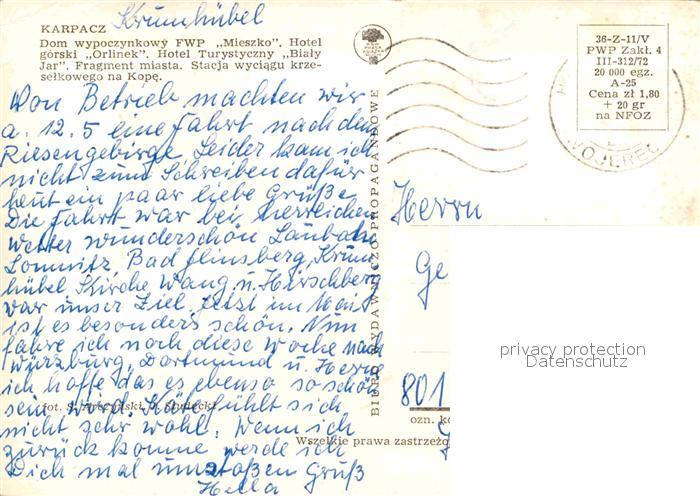 Krummhübel
KARPACZ
Dom wypoczynkowy FWP „Mieszko". Hotel
górski „Orlinek". Hotel Turystyczny „Biały
Jar". Fragment miasta. Stacja wyciągu krze-
sełkowego na Kopę.
36-Z-11/V
PWP Zakł. 4
III-312/72
20 000 egz.
A-25
Cena zł 1,80
+ 20 gr
na NFOZ
WOJEREC
Von Betrieb machten wir
a. 12.5 eine Fahrt nach dem
Riesengebirge Leider kam ich
nicht zum Schreiben dafür
heut ein paar liebe Grüße
Die Fahrt war bei herrlichen
Wetter wunderschön Lauban
Lomnitz, Bad Flinsberg, Krum
hübel Kirche Wang u. Hirschberg
war unser Ziel. Jetzt im Mai
ist es besonders schön. Nun
fahre ich noch diese Woche nach
Würzburg, Dortmund u. Herne
ich hoffe das es ebenso so schön
sein wird. Käte fühlt sich
nicht sehr wohl. Wenn ich
zurück komme werde ich
Dich mal
Gruß
Hella
BIURO WYDAWNICZO-PROPAGANDOWE
fot.
Wszelkie prawa zastrzeżo
ozn. ko
Herrn
Ge
801
privacy protection
Datenschutz